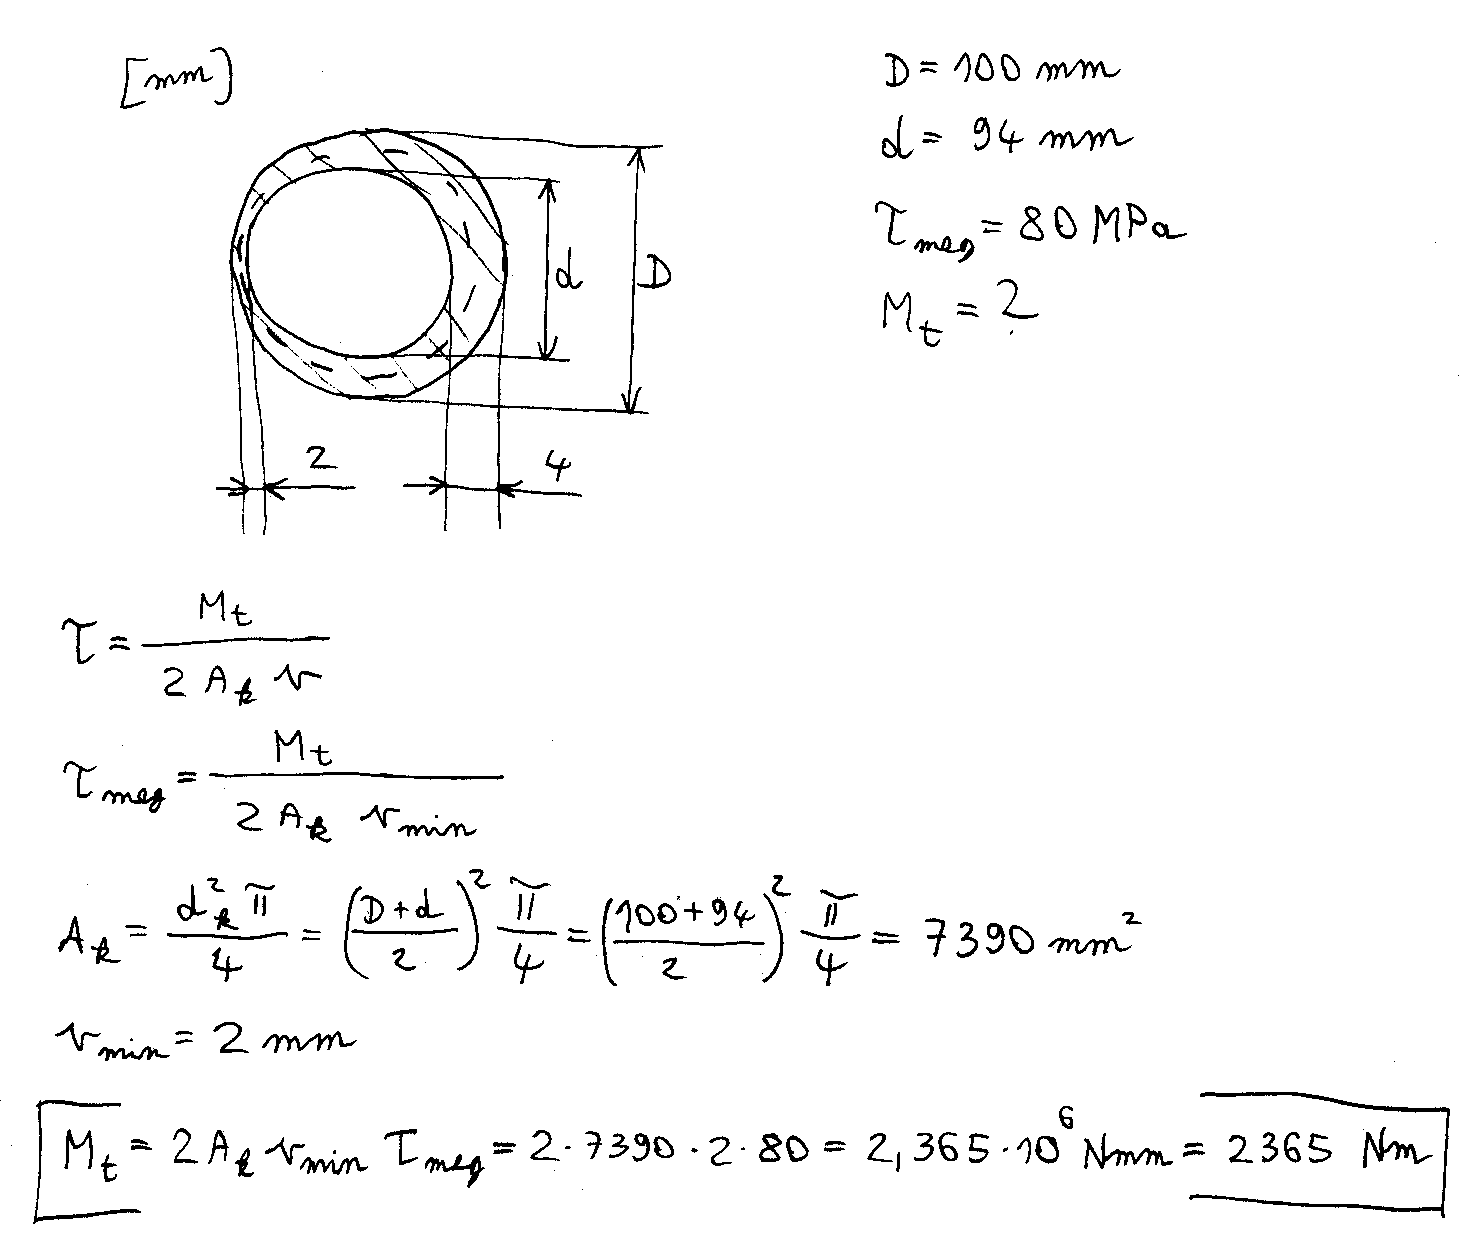 [mm]
D = 100 mm
d = 94 mm
τ_meg = 80 MPa
M_t = ?
d
D
2
4
τ = M_t / (2 A_k v)
τ_meg = M_t / (2 A_k v_min)
A_k = d_k² π / 4 = ((D+d)/2)² π/4 = ((100+94)/2)² π/4 = 7390 mm²
v_min = 2 mm
M_t = 2 A_k v_min τ_meg = 2·7390·2·80 = 2,365·10⁶ Nmm = 2365 Nm